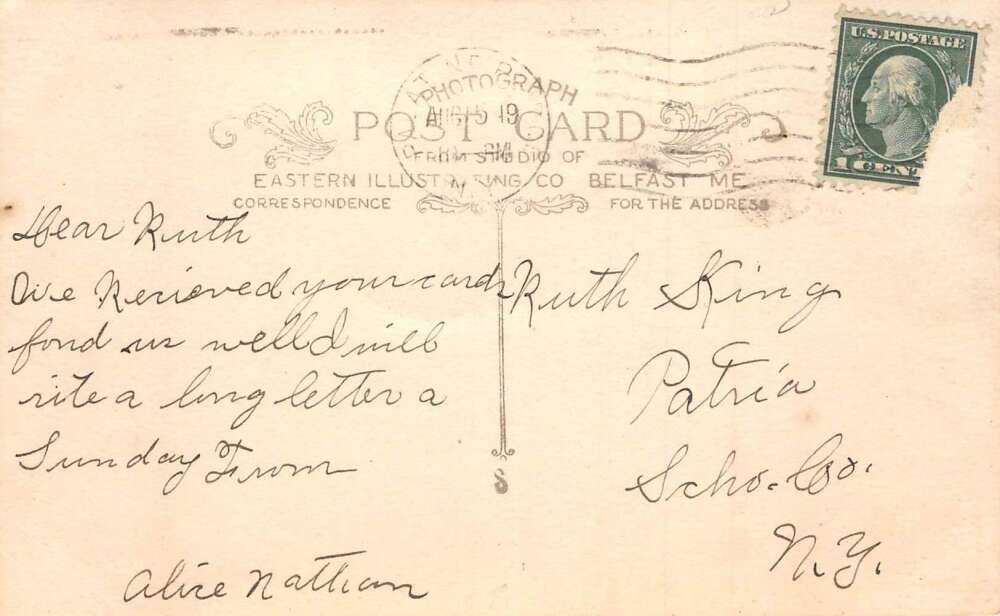 U.S. POSTAGE
1 CENT
PHOTOGRAPH
AUG 15 19
POST CARD
FROM STUDIO OF
EASTERN ILLUSTRATING CO BELFAST ME
CORRESPONDENCE
FOR THE ADDRESS
Dear Ruth
We Recieved your cards
fond us well I will
rite a long letter a
Sunday From
Alice Nathan
Ruth King
Patria
Scho. Co.
N.Y.
S